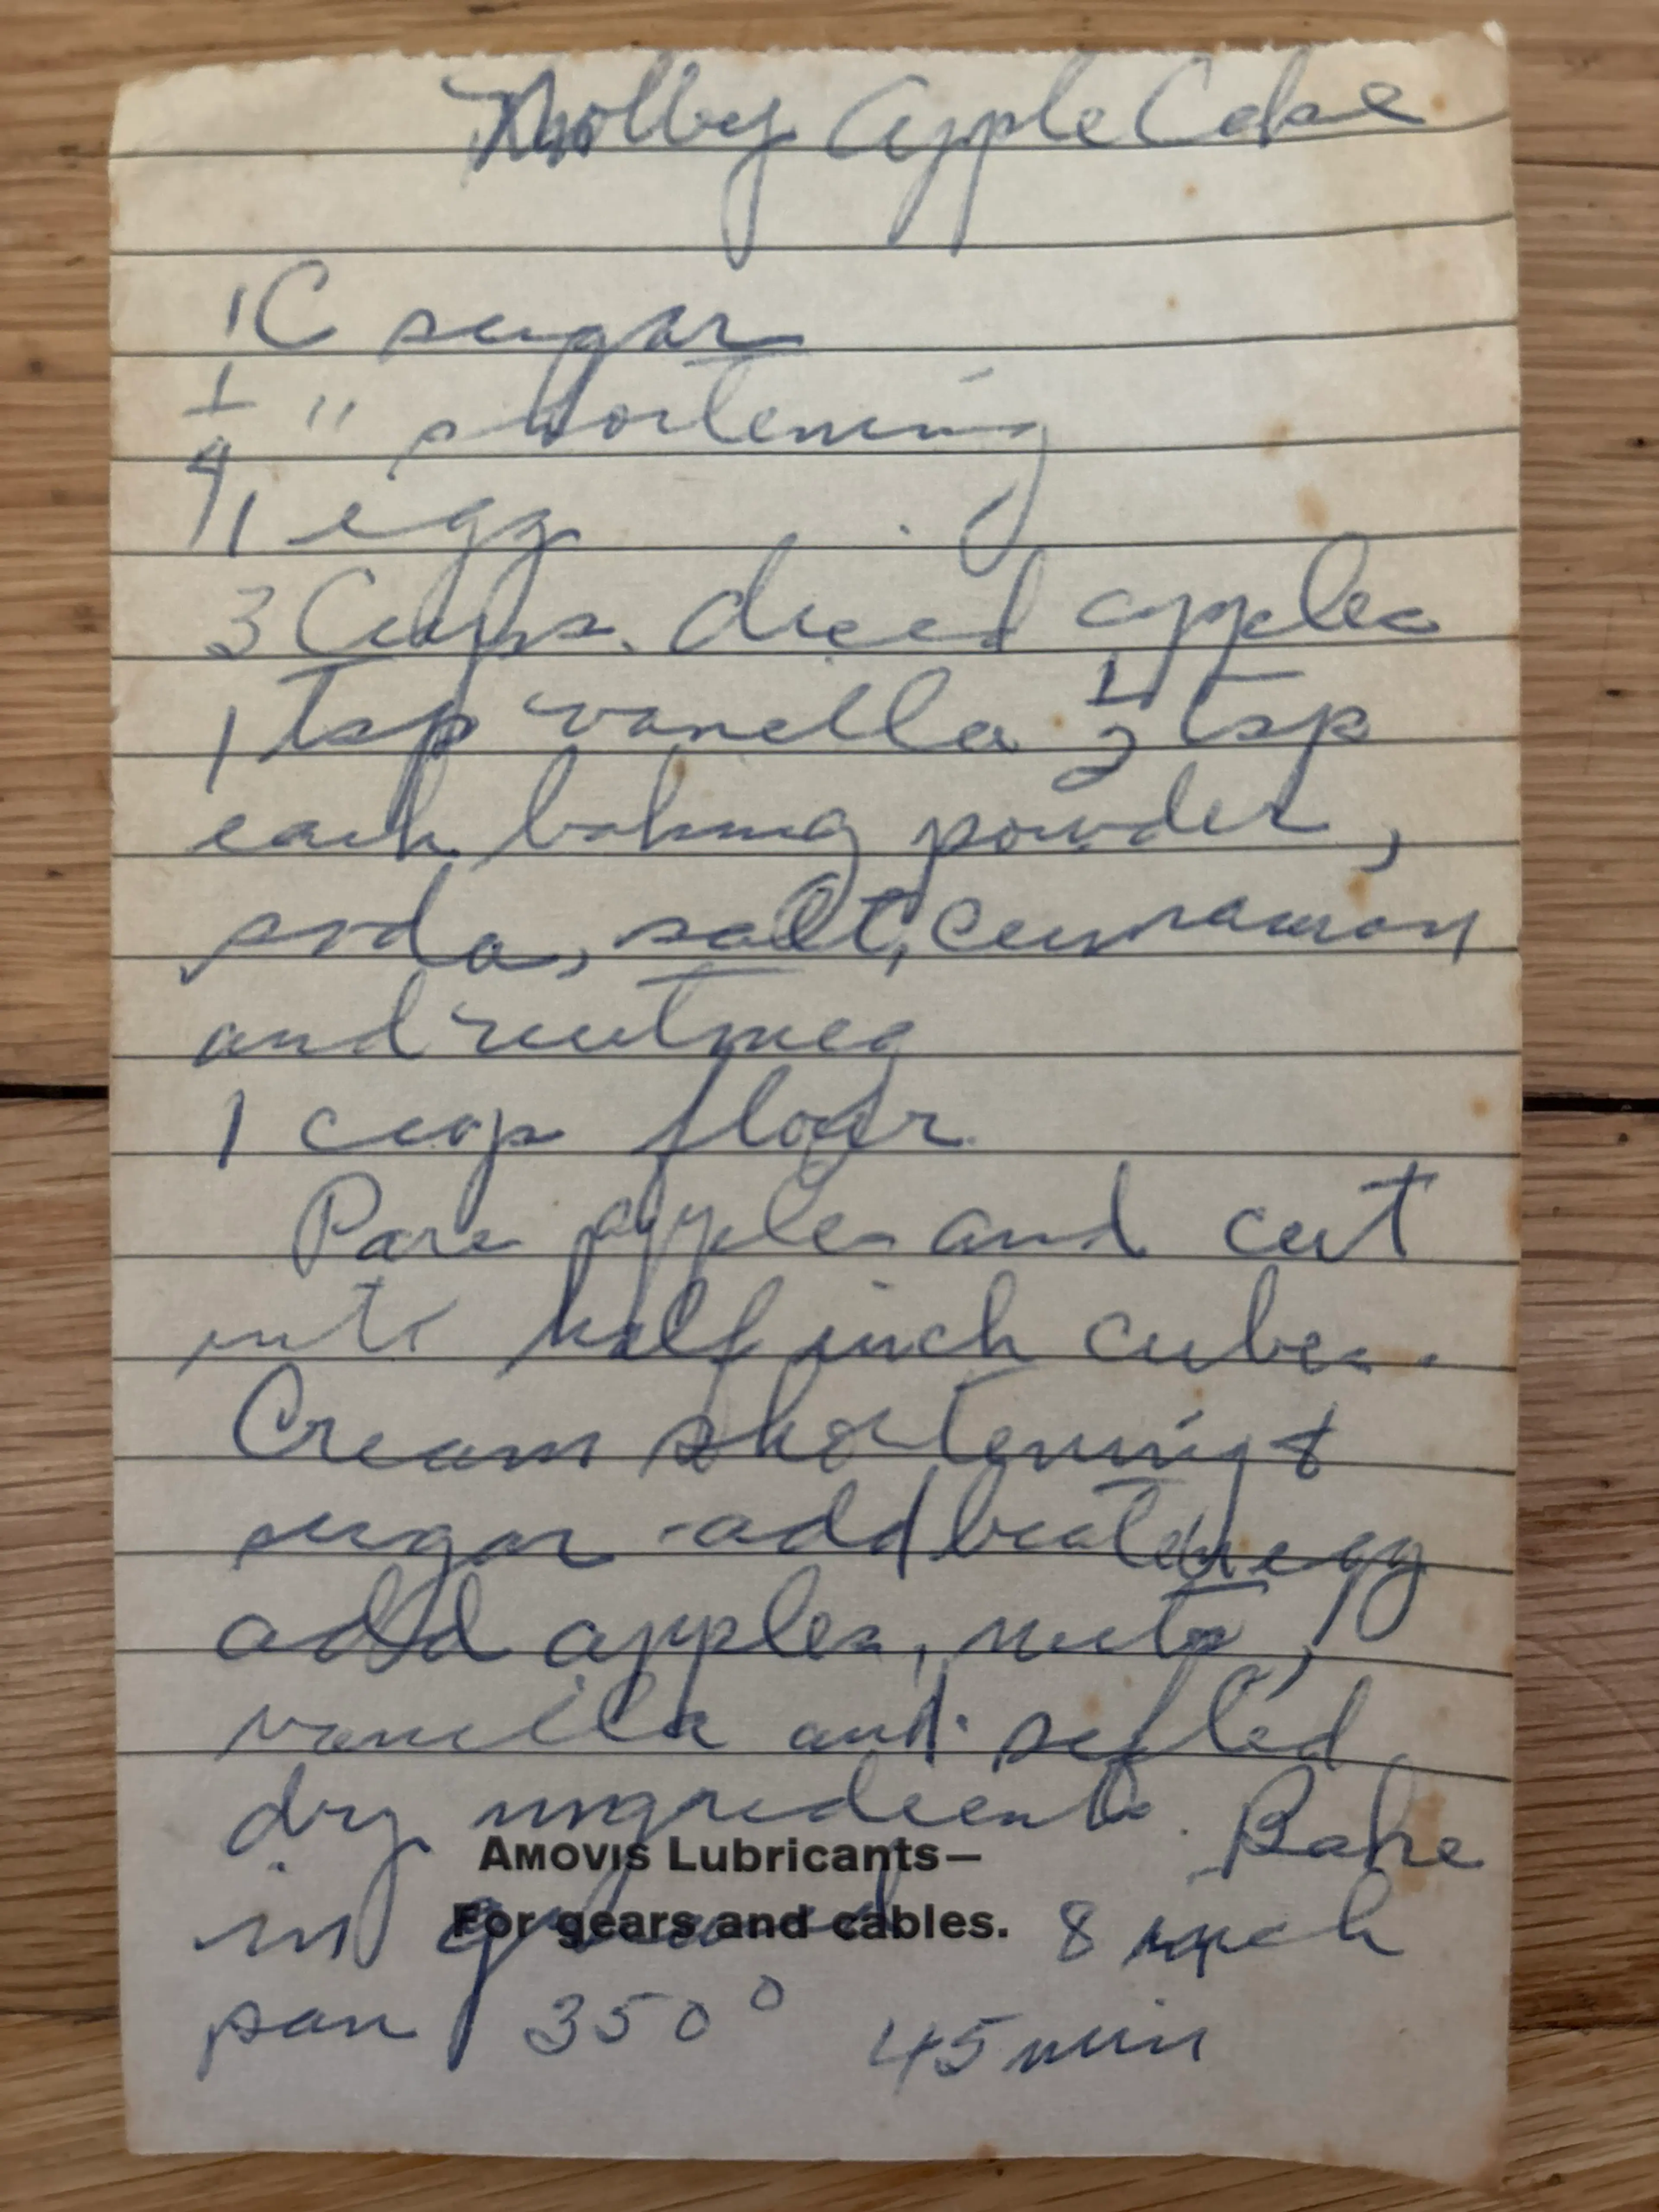 Knobby Apple Cake
1 C sugar
1/4 " shortening
1 egg
3 Cups diced apples
1 tsp vanilla 1/2 tsp
each baking powder,
soda, salt, cinnamon
and nutmeg
1 cup flour
Pare apples and cut
into half inch cubes.
Cream shortening &
sugar - add beaten egg
add apples, nuts,
vanilla and sifted
dry ingredients. Bake
AMOVIS Lubricants—
For gears and cables.
in greased 8 inch
pan 350° 45 min